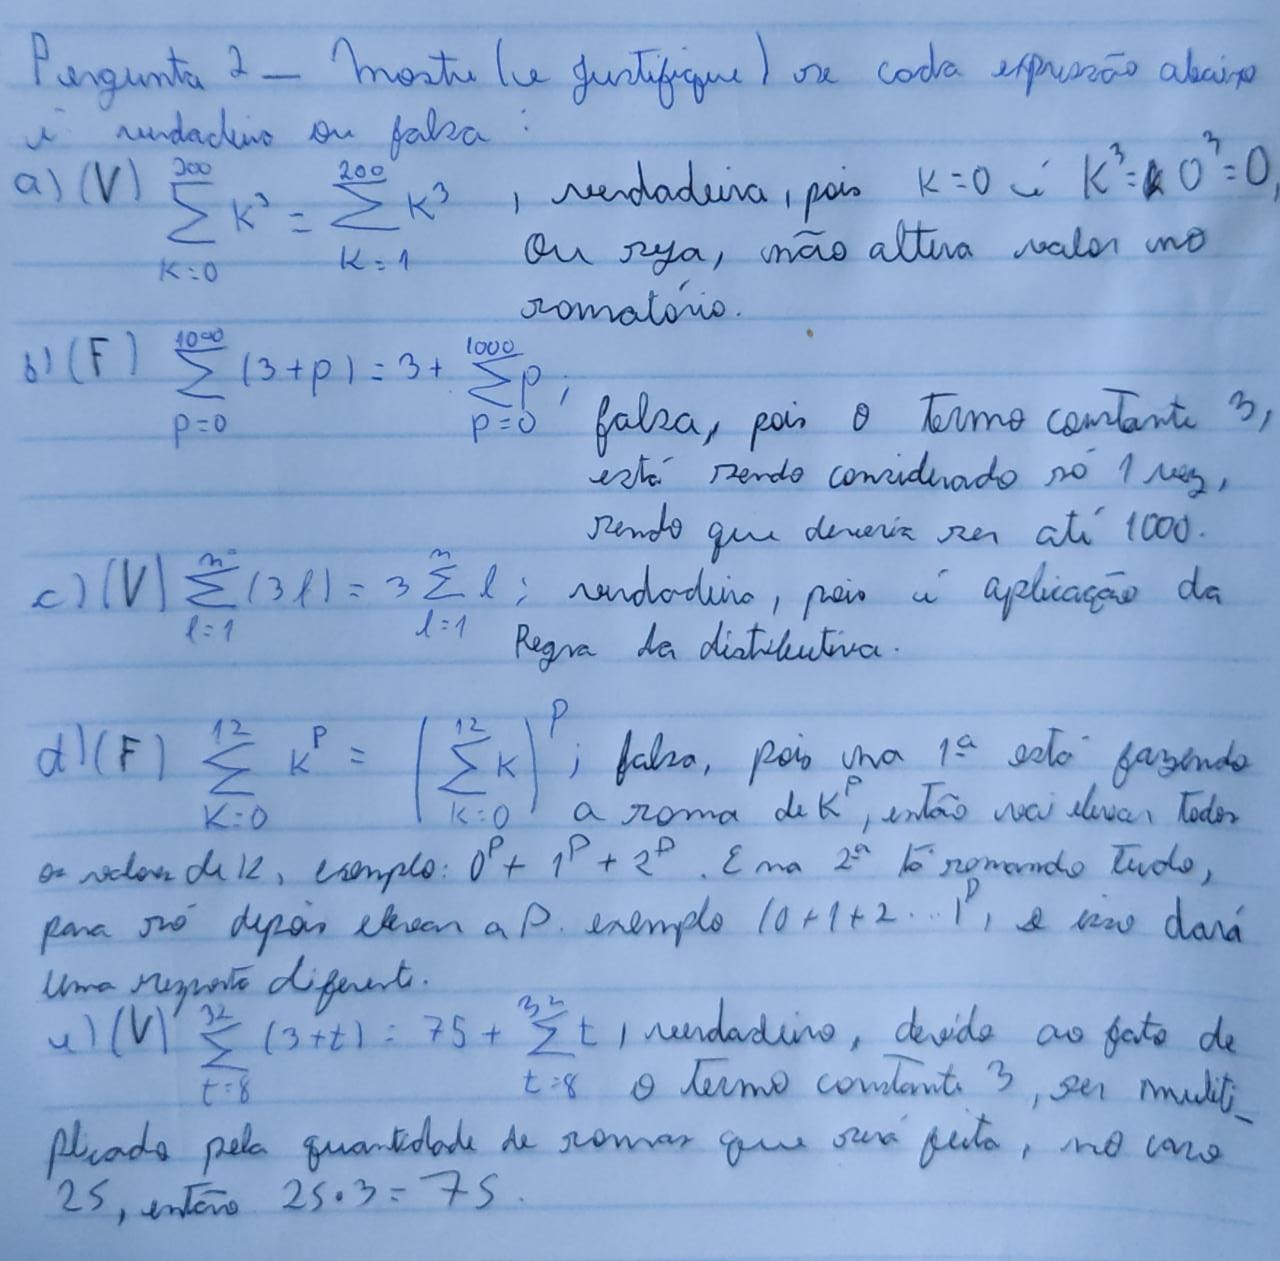 Pergunta 2 — Mostre (e justifique) se cada expressão abaixo
é verdadeiro ou falsa:
a) (V) ∑_{K=0}^{200} K³ = ∑_{K=1}^{200} K³ , verdadeira, pois K=0 é K³= 0³=0,
Ou seja, não altera valor no
somatório.
b) (F) ∑_{p=0}^{1000} (3+p) = 3+ ∑_{p=0}^{1000} p; falsa, pois o termo constante 3,
está sendo considerado só 1 vez,
sendo que deveria ser até 1000.
c) (V) ∑_{l=1}^{n} (3l) = 3 ∑_{l=1}^{n} l; verdadeiro, pois é aplicação da
Regra da distributiva.
d) (F) ∑_{K=0}^{12} K^P = (∑_{K=0}^{12} K)^P ; falsa, pois na 1ª está fazendo
a soma de K^P, então vai elevar todos
os valores de K, exemplo: 0^P + 1^P + 2^P. E na 2ª tá somando tudo,
para só depois elevar a P. exemplo (0+1+2...)^P, e isso dará
uma resposta diferente.
e) (V) ∑_{t=8}^{32} (3+t) = 75 + ∑_{t=8}^{32} t, verdadeiro, devido ao fato de
o termo constante 3, ser multi_
plicado pela quantidade de somas que será feita, no caso
25, então 25·3 = 75.